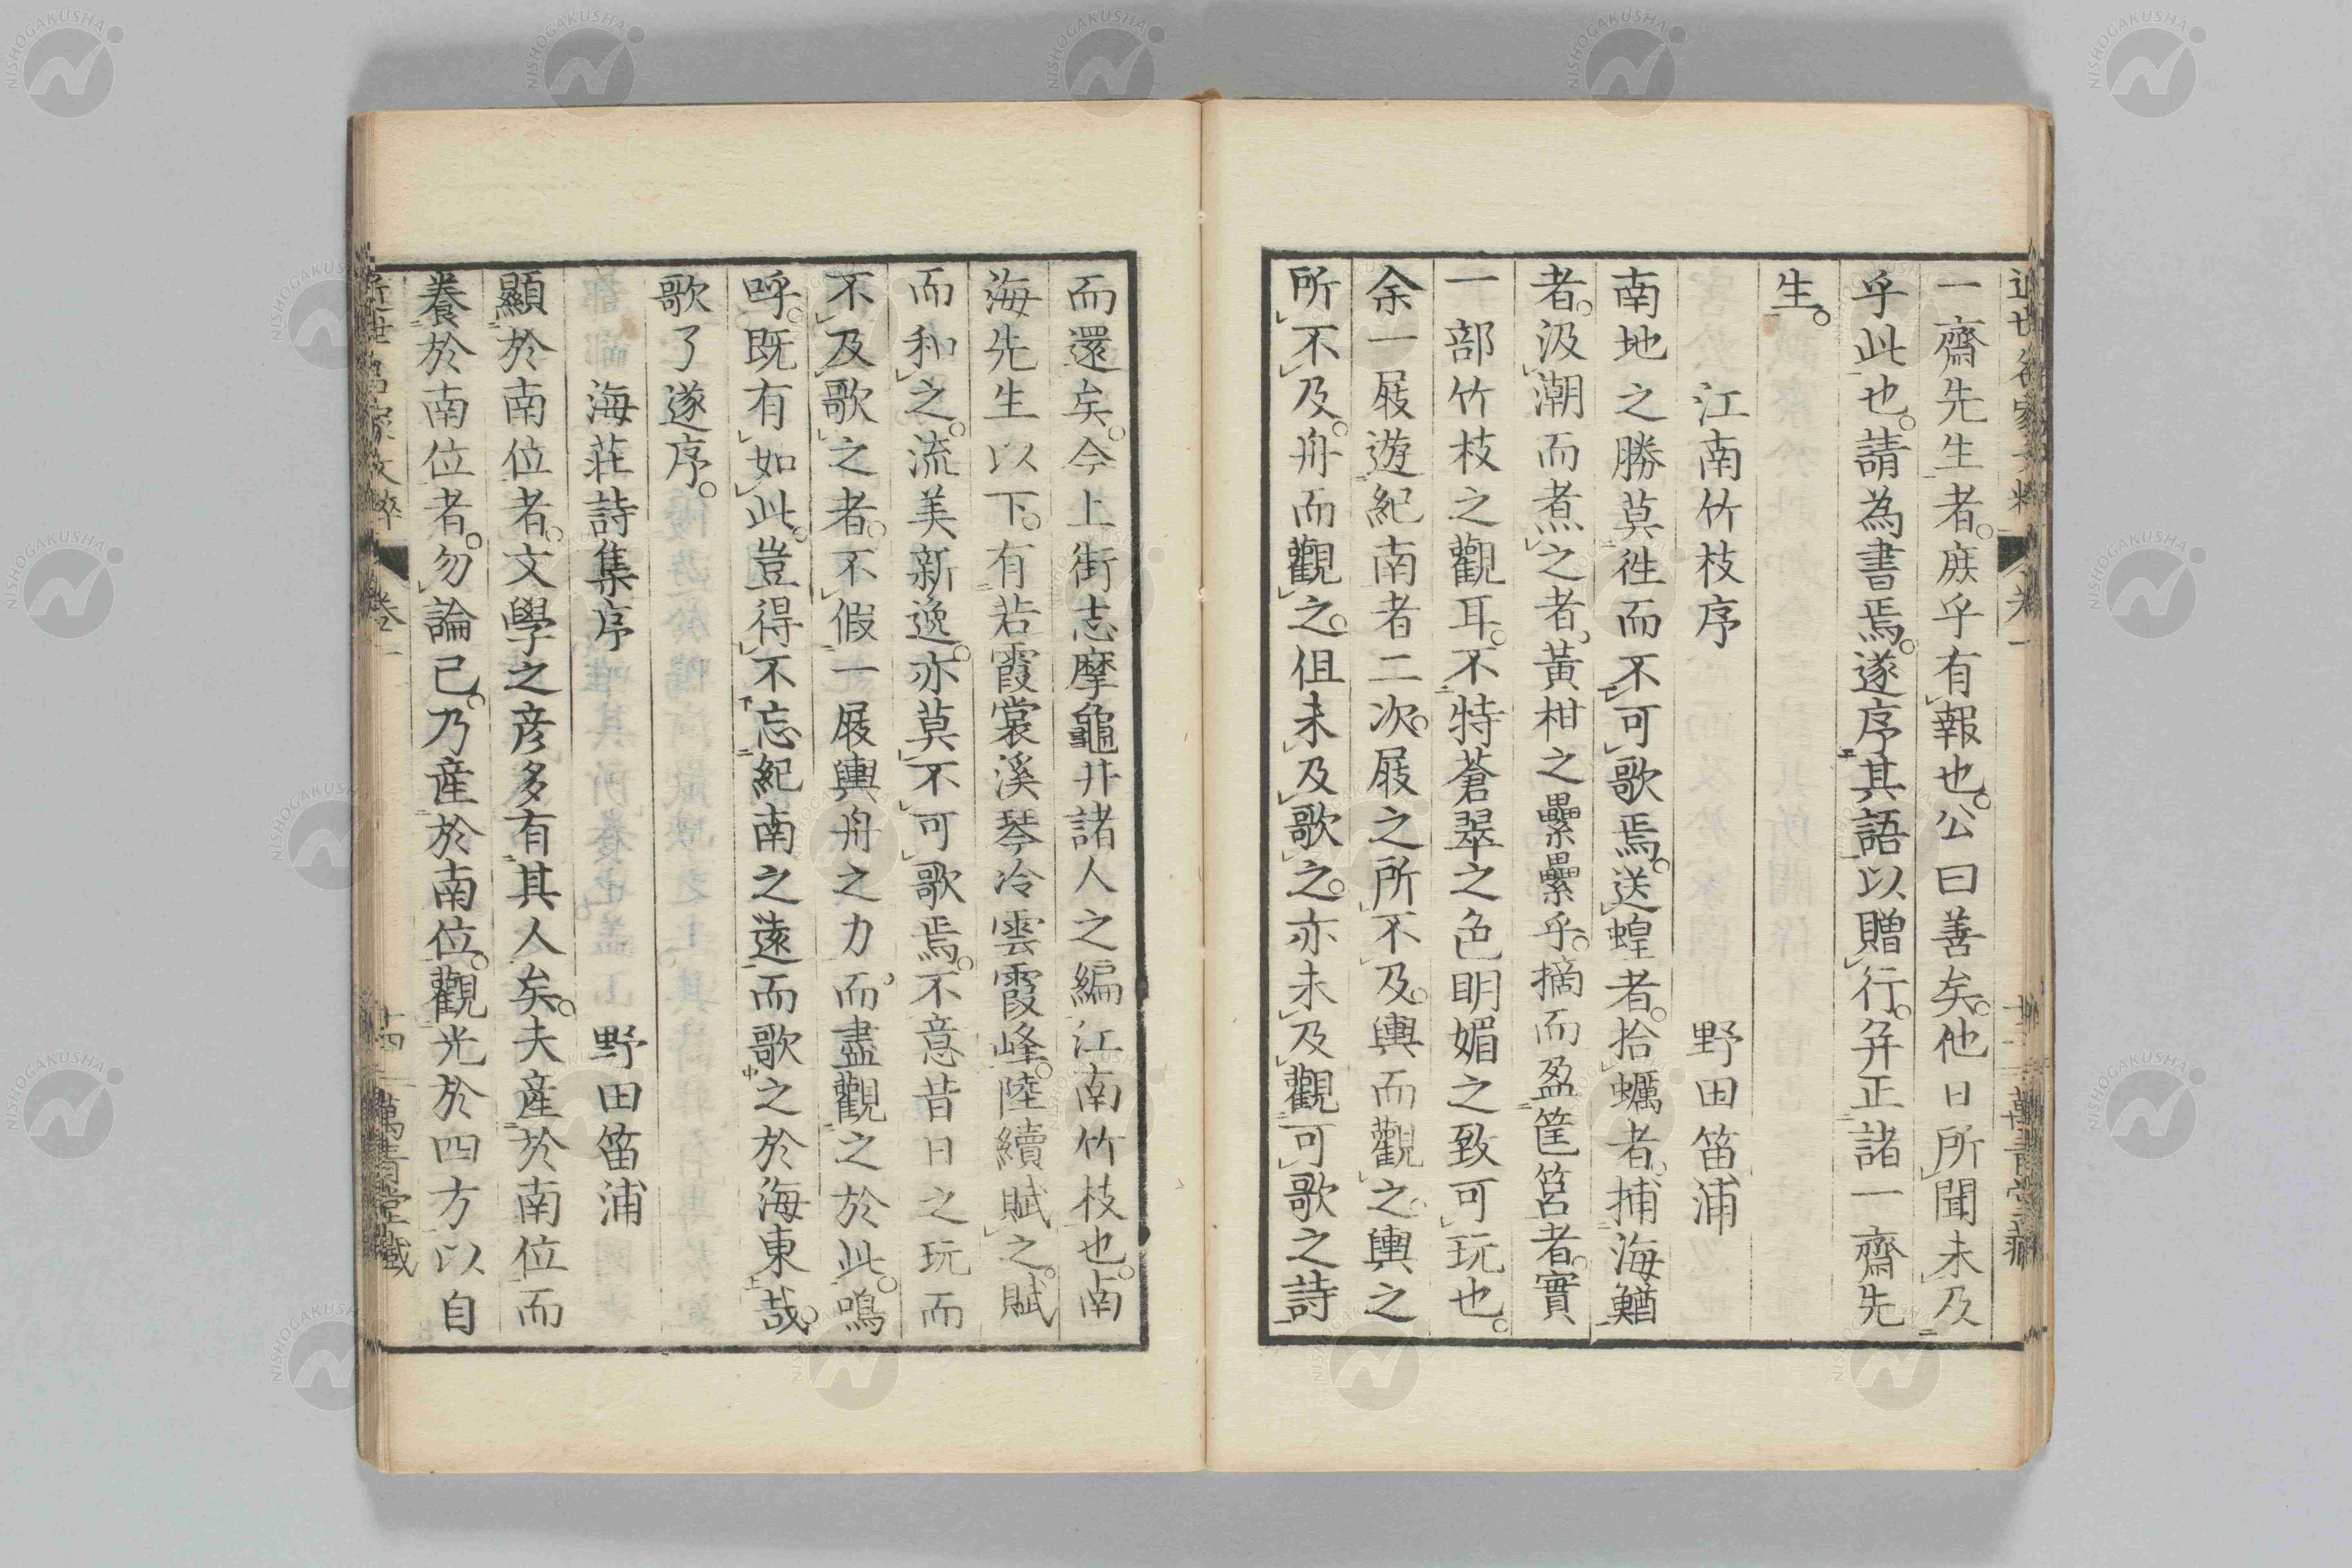 一齋先生者。庻乎有報也。公曰善矣。他日所聞未及
乎此也。請為書焉。遂序其語以贈行。并正諸一齋先
生。
江南竹枝序　野田笛浦
南地之勝莫徃而不可歌焉。送蝗者。拾蠣者。捕海鰌
者。汲潮而煮之者。黃柑之纍纍乎。摘而盈筐筥者。實
一部竹枝之觀耳。不特蒼翠之色明媚之致可玩也。
余一屐遊紀南者二次。屐之所不及。輿而觀之。輿之
所不及。舟而觀之。但未及歌之。亦未及觀可歌之詩
而還矣。今上街志摩龜井諸人之編江南竹枝也。南
海先生以下。有若霞裳溪琴冷雲霞峰。陸續賦之。賦
而和之。流美新逸。亦莫不可歌焉。不意昔日之玩而
不及歌之者。不假一屐輿舟之力。而盡觀之於此。鳴
呼。既有如此。豈得不忘紀南之遠而歌之於海東哉。
歌了遂序。
海莊詩集序　野田笛浦
顯於南位者。文學之彦多有其人矣。夫産於南位而
養於南位者。勿論已。乃産於南位。觀光於四方以自
近世名家文粹　卷一　十四　萬青堂藏